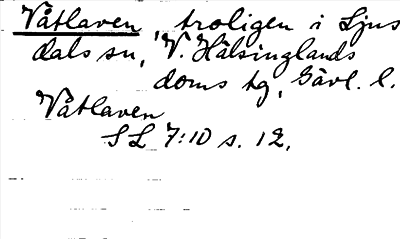 Våtlaven, troligen i Ljus
dals sn, V. Hälsinglands
doms tg, Gävl. l.
Våtlaven
SL 7:10 s. 12.